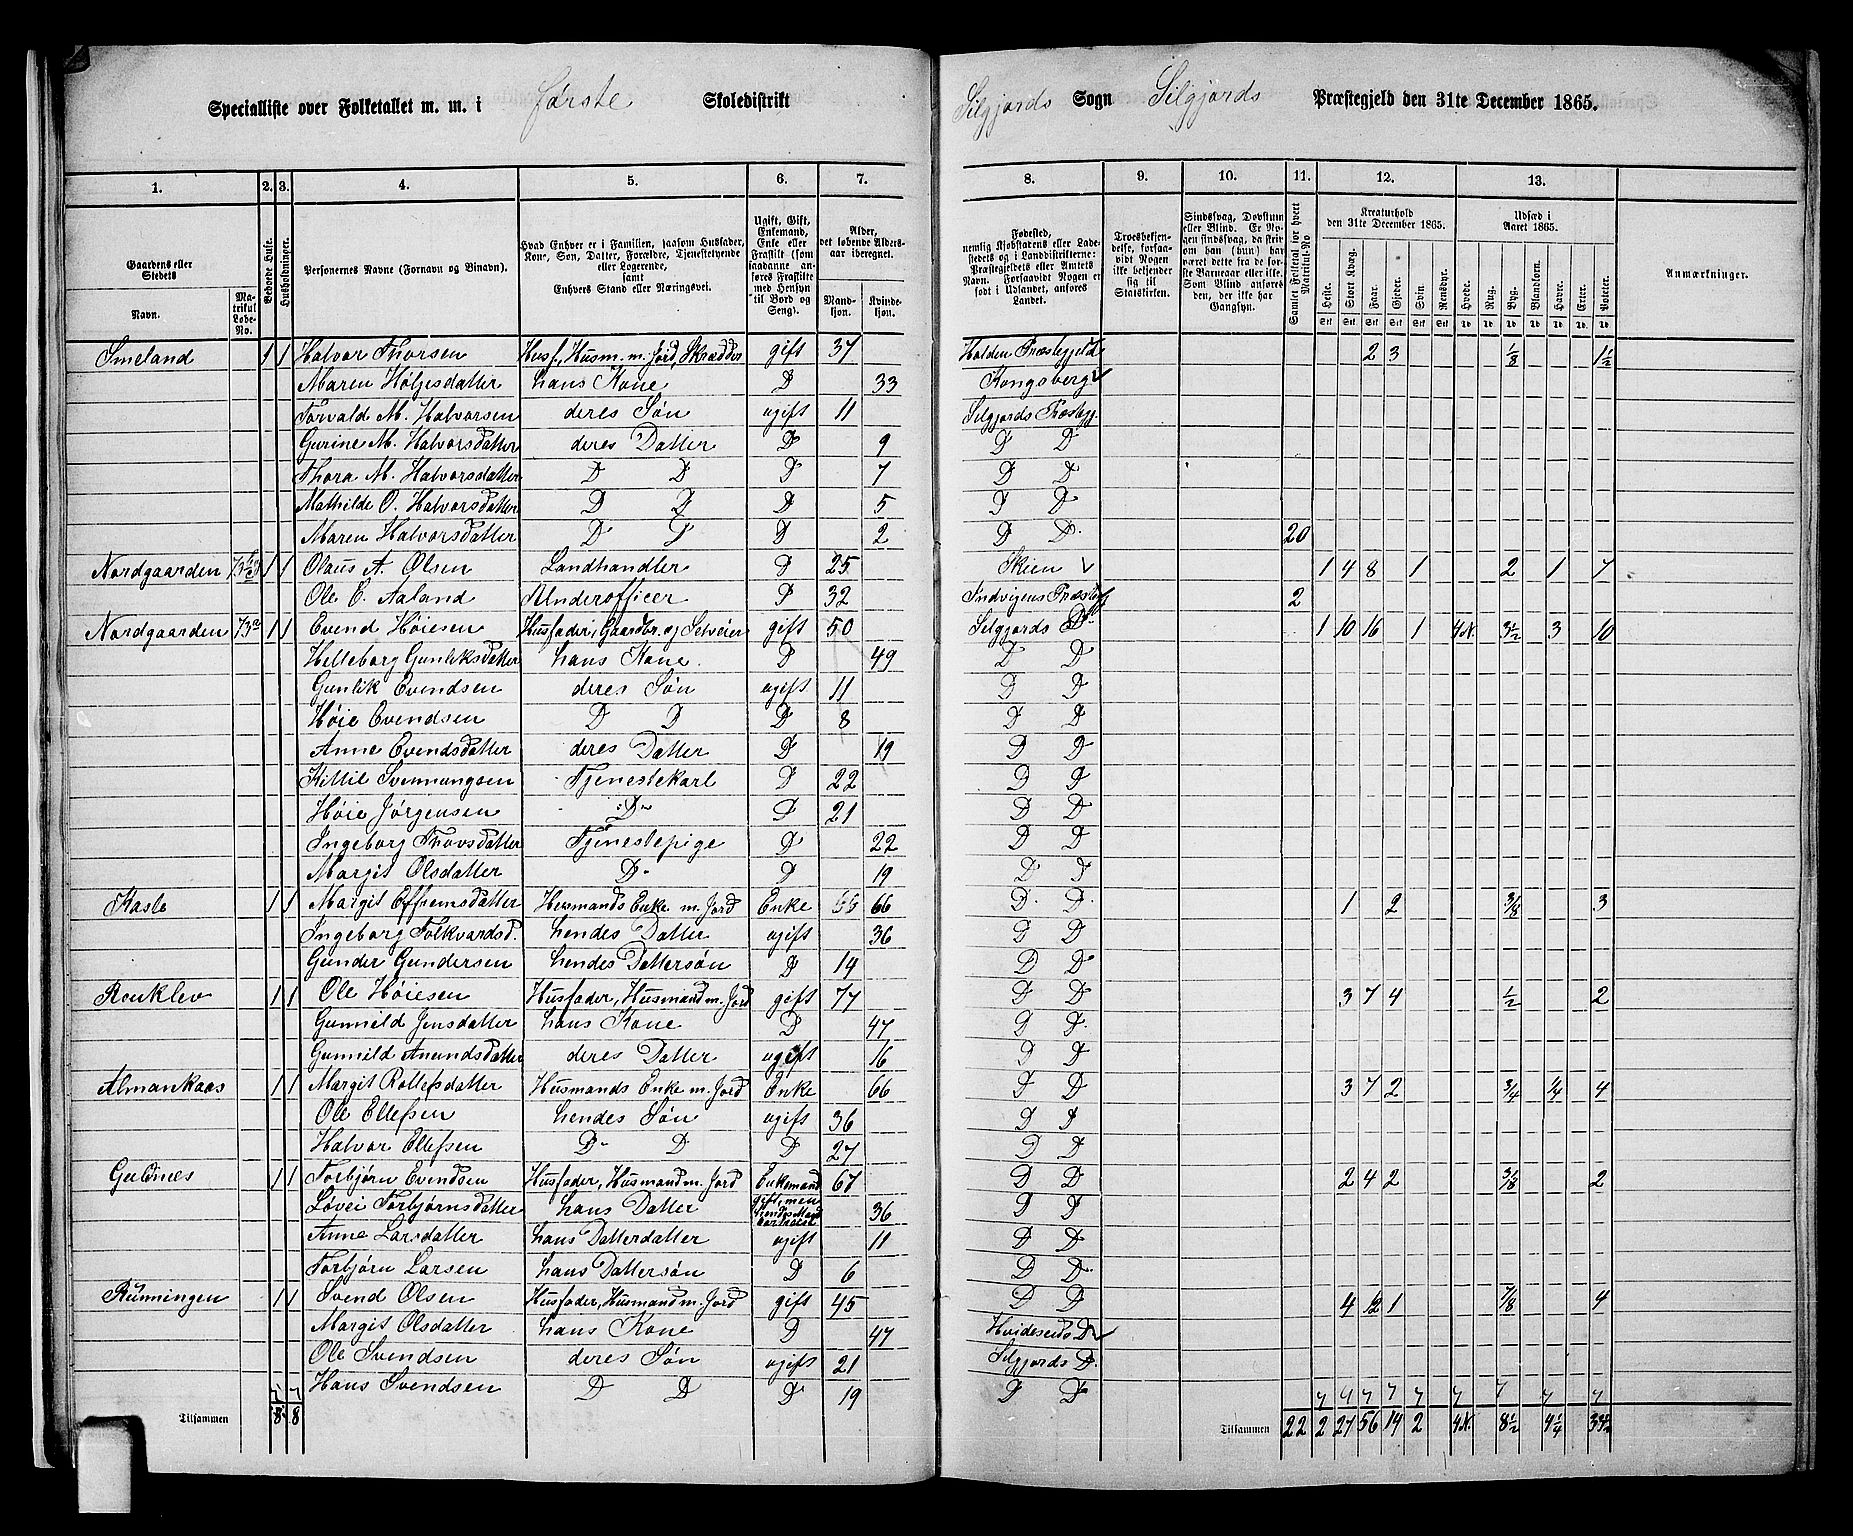 Specialliste over Folketallet m. m. i Første Skoledistrikt Silgjords Sogn Silgjords Præstegjeld den 31te December 1865.
1. 2. 3. 4. 5. 6. 7. 8. 9. 10. 11. 12. 13.
Gaardens eller Stedets Navn. Matrikul Løbe-No. Beboede Huse. Husholdninger. Personernes Navne (Fornavn og Binavn). Hvad Enhver er i Familien, saasom Husfader, Kone, Søn, Datter, Forældre, Tjenestetyende eller Logerende, samt Enhvers Stand eller Næringsvei. Ugift, Gift, Enkemand, Enke eller Fraskilt (som saadanne anføres Fraskilte med Hensyn til Bord og Seng). Alder, det løbende Aldersaar iberegnet. Mandkjøn. Kvindekjøn.
Fødested, nemlig Kjøbstadens eller Ladestedets og i Landdistrikterne: Præstegjeldets eller Amtets Navn. I Landsaavidt Nogen er født i Udlandet, anføres Landet. Troesbekjendelse, forsaavidt Nogen ikke bekjender sig til Statskirken. Sindssvag, Døvstum eller Blind. Er Nogen sindssvag, da skrives han (hun) har været dette fra de første Barneaar eller ikke. Som Blind anføres den, der ikke har Gangsyn. Samlet Folketal for hvert Matrikul-No Kreaturhold den 31te December 1865. Udsæd i Aaret 1865. Anmærkninger.
Heste. Stort Kvæg. Faar. Gjeder. Svin. Rensdyr. Hvede. Rug. Byg. Blandkorn. Havre. Erter. Poteter.
Smeland 1 1 Halvor Thorsen Husf., Husm. m. Jord, Skrædder gift 37 Holden Præstegjeld 2 3 1/8 1 1/2
Maren Høljesdatter hans Kone D 33 Kongsberg
Torvald M. Halvorsen deres Søn ugift 11 Silgjords Præstegj.
Gurine M. Halvorsdatter deres Datter D 9 D D
Thora M. Halvorsdatter D D D 7 D D
Mathilde O. Halvorsdatter D D D 5 D D
Maren Halvorsdatter D D D 2 D D. 20
Nordgaarden 1 1 Olaus A. Olsen Landhandler D 25 Skien 1 4 8 1 2 1 7
Ole E. Aaland Underofficer D 32 Indvigens Præstegj 2
Nordgaarden 73 1 1 Evend Høiesen Husfader, Gaardbr. og Selveier gift 50 Silgjords D 1 10 16 1 4 3 1/2 3 10
Helleborg Gunliksdatter hans Kone. D 49 D D
Gunlik Evendsen deres Søn ugift 11 D D
Høie Evendsen D D D 8 D D
Anne Evendsdatter deres Datter D 19 D D
Kittil Svennungsen Tjenestekarl D 22 D D
Høie Jørgensen D D 21 D D
Ingeborg Thovsdatter Tjenestepige D 22 D D
Margit Olsdatter D D 19 D D
Kasle 1 1 Margit Effremsdatter Husmands Enke m. Jord Enke 66 D. D. 1 2 3/8 3
Ingeborg Folkvardsd. hendes Datter ugift 36 D D
Gunder Gundersen hendes Dattersøn D 14 D D
Rouklev 1 1 Ole Høiesen Husfader, Husmand m. Jord gift 77 D D 3 7 4 1/2 2
Gunnild Jensdatter hans Kone D 47 D D.
Gunnild Anundsdatter deres Datter ugift 16 D D
Almankaas 1 1 Margit Rollefsdatter Husmands Enke m. Jord Enke 66 D D 3 7 2 3/4 1/4 4
Ole Ellefsen hendes Søn ugift 36 D D
Halvor Ellefsen D D D 27 D D
Guldnes 1 1 Torbjørn Evendsen Husfader, Husmand m. Jord Enkemand 67 D D 2 4 2 3/8 2
Løvei Torbjørnsdatter hans Datter gift, men hendes Mand bortreist 36 D D
Anne Larsdatter hans Datterdatter ugift 11 D D
Torbjørn Larsen hans Dattersøn D 6 D D
Runningen 1 1 Svend Olsen Husfader, Husmand m. Jord gift 45 D D 4 12 1 7/8 4
Margit Olsdatter hans Kone D 47 Hvideseids D
Ole Svendsen deres Søn ugift 21 Silgjords D.
Hans Svendsen D D D 19 D D
Tilsammen 8 8 Tilsammen 22 2 27 56 14 2 8 1/2 4 1/4